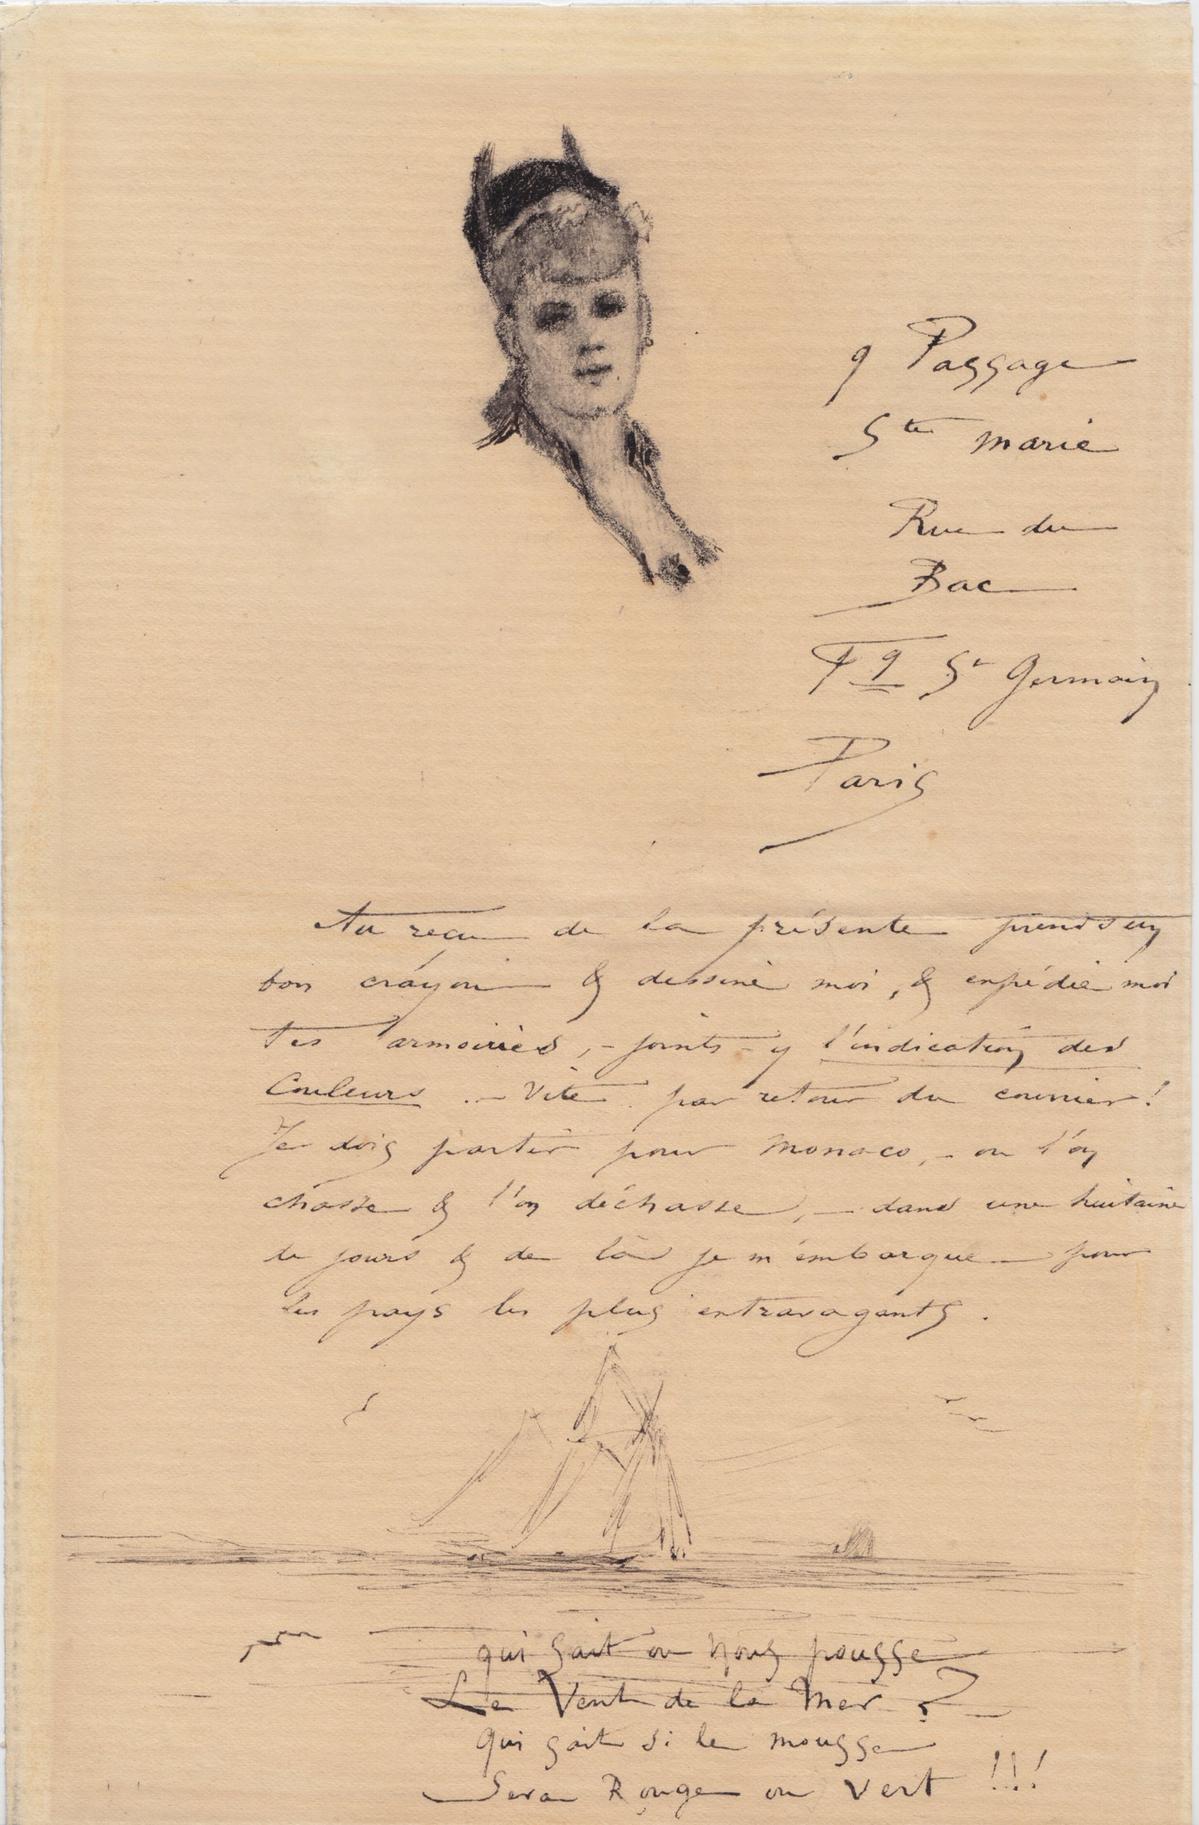 9 Passage
Ste marie
Rue du
Bac
Fg St Germain
Paris
Au reçu de la présente prends un
bon crayon & dessine moi, & expédie moi
tes armoiries, - joints-y l'indication des
Couleurs. - Vite par retour du courrier!
Je dois partir pour Monaco, - ou l'on
chasse & l'on déchasse, - dans une huitaine
de jours & de là je m'embarque pour
les pays les plus extravagants.
qui sait ou nous pousse
Le Vent de la Mer ?
Qui sait si le mousse
Sera Rouge ou Vert !!!